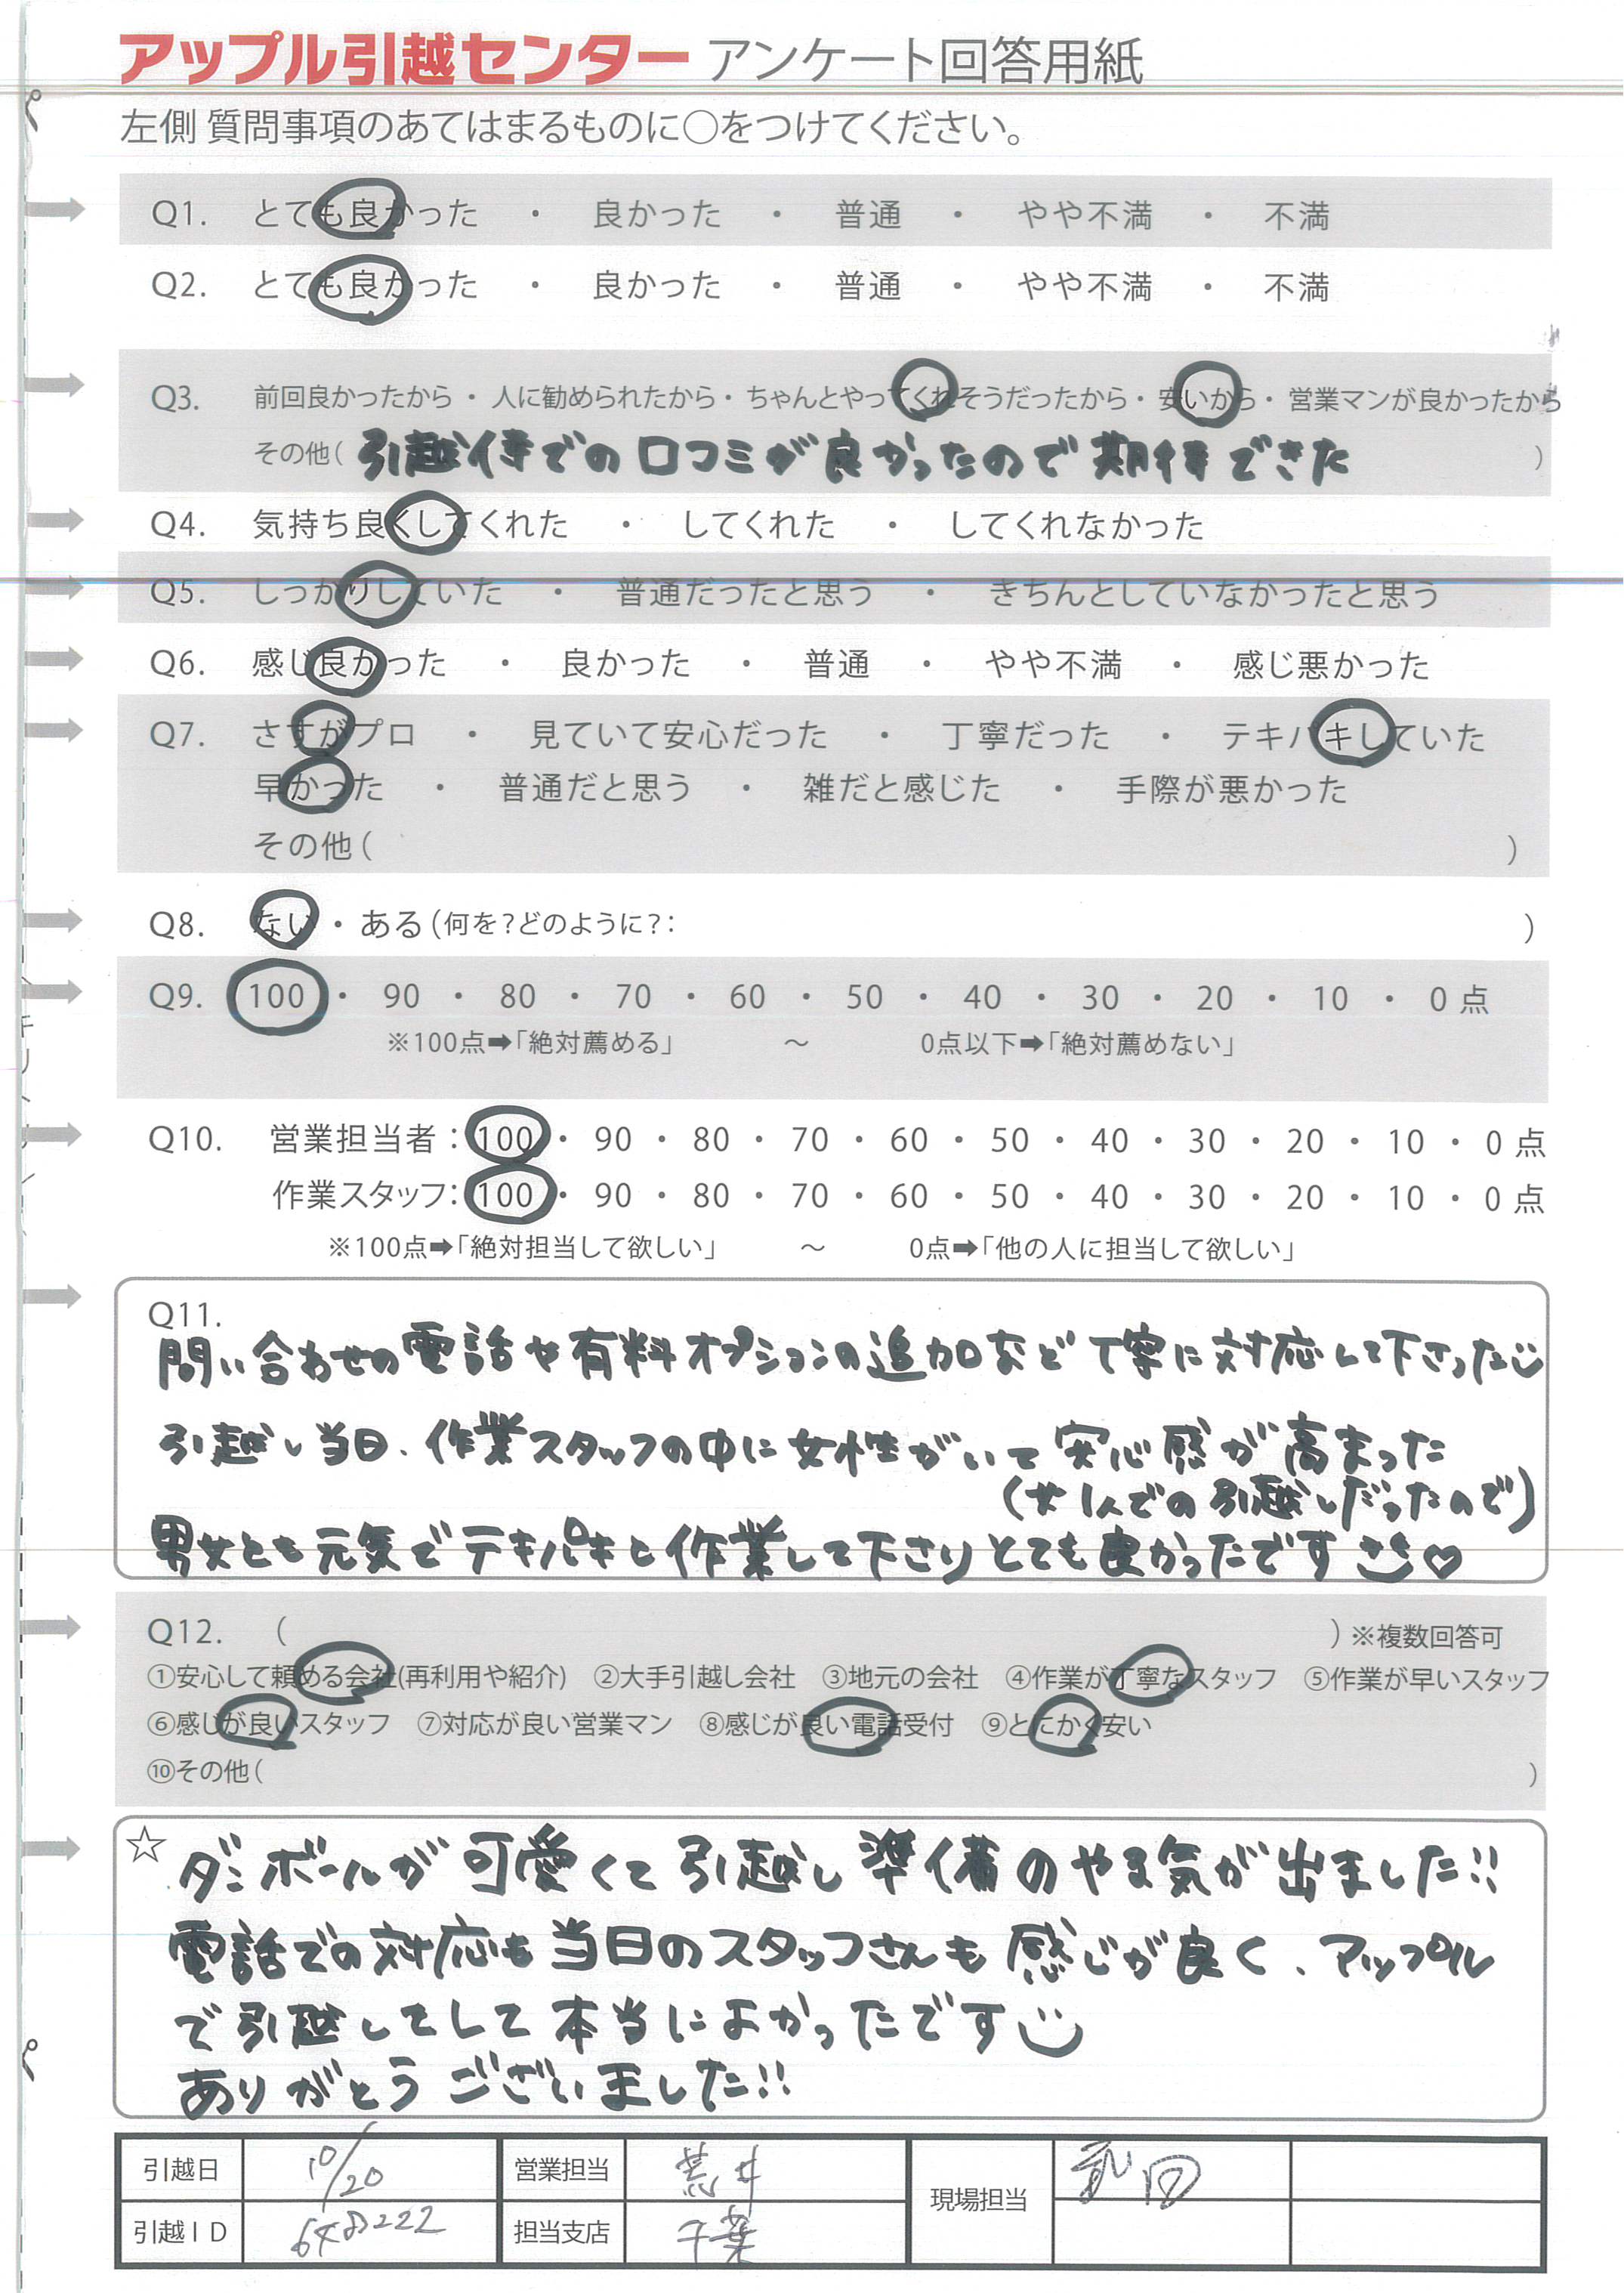 アップル引越センター アンケート回答用紙
左側 質問事項のあてはまるものに○をつけてください。
Q1. とても良かった ・ 良かった ・ 普通 ・ やや不満 ・ 不満
Q2. とても良かった ・ 良かった ・ 普通 ・ やや不満 ・ 不満
Q3. 前回良かったから・人に勧められたから・ちゃんとやってくれそうだったから・安いから・営業マンが良かったから
その他( 引越侍での口コミが良かったので期待できた )
Q4. 気持ち良くしてくれた ・ してくれた ・ してくれなかった
Q5. しっかりしていた ・ 普通だったと思う ・ きちんとしていなかったと思う
Q6. 感じ良かった ・ 良かった ・ 普通 ・ やや不満 ・ 感じ悪かった
Q7. さすがプロ ・ 見ていて安心だった ・ 丁寧だった ・ テキパキしていた
早かった ・ 普通だと思う ・ 雑だと感じた ・ 手際が悪かった
その他( )
Q8. ない・ある(何を?どのように?: )
Q9. 100 ・ 90 ・ 80 ・ 70 ・ 60 ・ 50 ・ 40 ・ 30 ・ 20 ・ 10 ・ 0 点
※100点➡「絶対薦める」 ～ 0点以下➡「絶対薦めない」
Q10. 営業担当者:100・ 90 ・ 80 ・ 70 ・ 60 ・ 50 ・ 40 ・ 30 ・ 20 ・ 10 ・ 0 点
作業スタッフ:100・ 90 ・ 80 ・ 70 ・ 60 ・ 50 ・ 40 ・ 30 ・ 20 ・ 10 ・ 0 点
※100点➡「絶対担当して欲しい」 ～ 0点➡「他の人に担当して欲しい」
Q11.
問い合わせの電話や有料オプションの追加など丁寧に対応して下さった
引越し当日、作業スタッフの中に女性がいて安心感が高まった
(女1人での引越しだったので)
男女とも元気でテキパキと作業して下さりとても良かったです♡
Q12. ( )※複数回答可
①安心して頼める会社(再利用や紹介) ②大手引越し会社 ③地元の会社 ④作業が丁寧なスタッフ ⑤作業が早いスタッフ
⑥感じが良いスタッフ ⑦対応が良い営業マン ⑧感じが良い電話受付 ⑨とにかく安い
⑩その他( )
☆ ダンボールが可愛くて引越し準備のやる気が出ました!!
電話での対応も当日のスタッフさんも感じが良く、アップル
で引越しをして本当によかったです
ありがとうございました!!
引越日 10/20 営業担当 荒井 現場担当
引越ID 担当支店 千葉